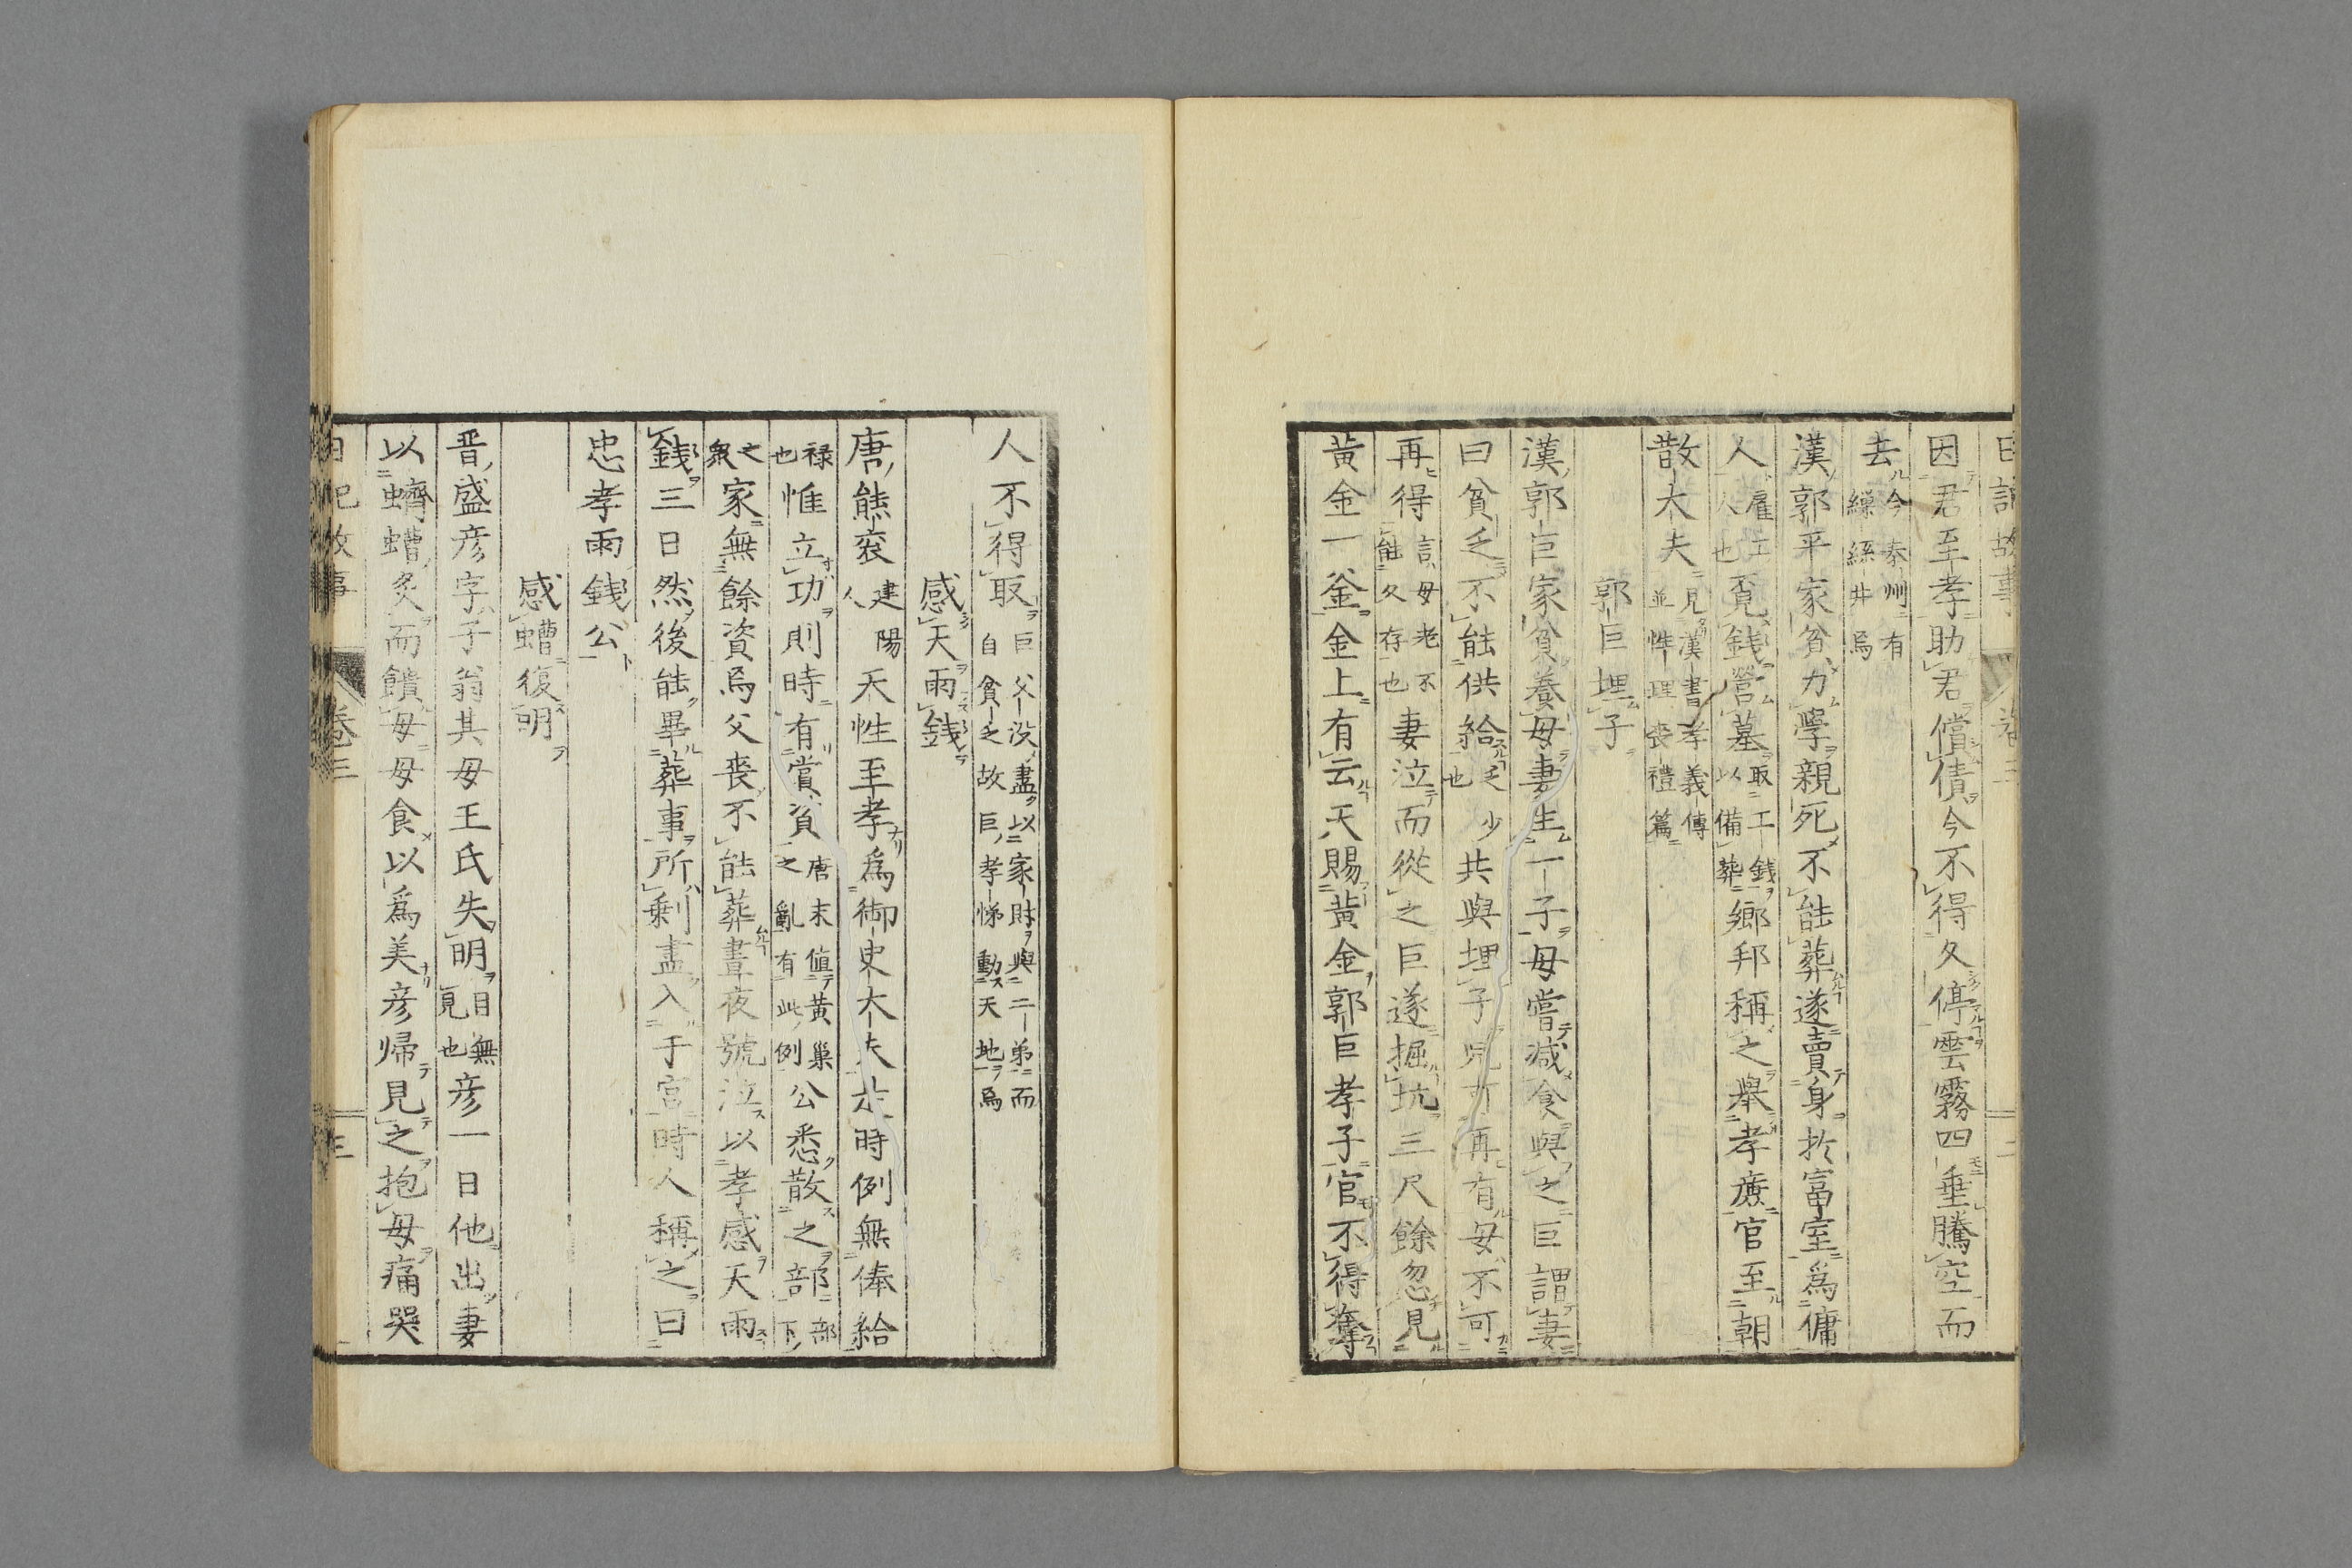 日記故事 卷三 二
因君至孝助君償債今不得久停雲霧四垂騰空而
去今泰州有繰絲井焉
漢郭平家貧力學親死不能葬遂賣身於富室爲傭
人雇工人也覓錢營墓取工錢以備葬鄉邦稱之舉孝廉官至朝
散大夫見漢書孝義傳並性理喪禮篇
郭巨埋子
漢郭巨家貧養母妻生一子母嘗減食與之巨謂妻
曰貧乏不能供給乏少也共與埋子兒可再有母不可
再得言母老不能久存也妻泣而從之巨遂掘坑三尺餘忽見
黃金一釜金上有云天賜黃金郭巨孝子官不得奪
人不得取巨父没盡以家財與二弟而自貧乏故巨孝悌動天地焉
感天雨錢
唐熊袞建陽人天性至孝爲御史大夫時例無俸給
禄也惟立功則時有賞賚唐末値黃巢之亂有此例公悉散之部部下
之衆家無餘資爲父喪不能葬晝夜號泣以孝感天雨
錢三日然後能畢葬事所剩盡入于官時人稱之曰
忠孝雨錢公
感螬復明
晋盛彦字子翁其母王氏失明目無見也彦一日他出妻
以蠐螬炙而饋母母食以爲美彦帰見之抱母痛哭
日記故事 卷三 三